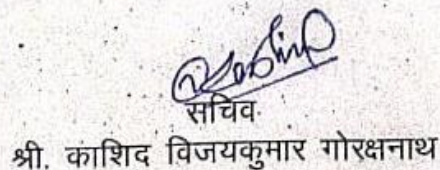 सचिव
श्री. काशिद विजयकुमार गोरक्षनाथ